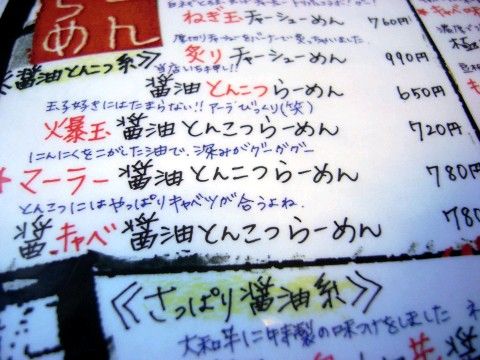 らーめん
ねぎ玉チャーシューめん 760円
厚切りチャーシューをバーナーで炙っちゃいました
炙りチャーシューめん 990円
≪醤油とんこつ系≫
当店いち押し!!
醤油とんこつらーめん 650円
玉子好きにはたまらない!!アーラびっくり(笑)
火爆玉 醤油とんこつらーめん 720円
にんにくをこがした油で、深みがグーグググー
マーラー 醤油とんこつらーめん 780円
とんこつにはやっぱりキャベツが合うよね。
キャベ 醤油とんこつらーめん 780
≪さっぱり醤油系≫
大和牛に特製の味つけをしました